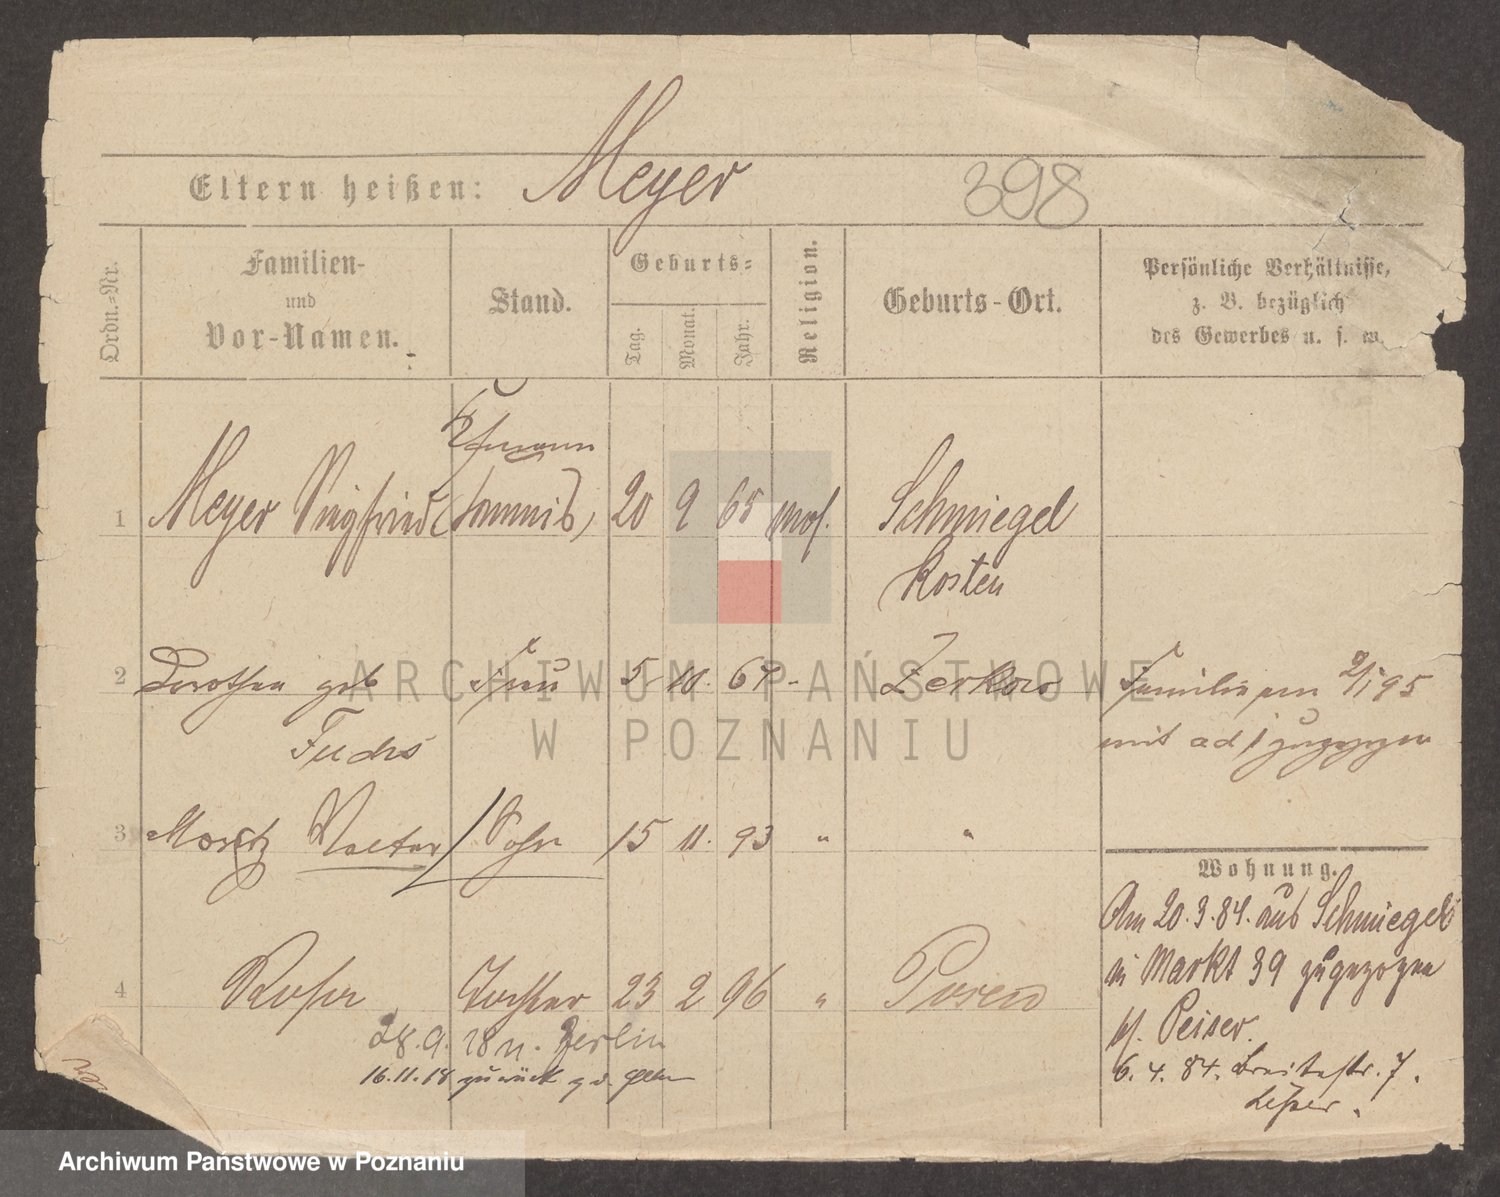 Eltern heißen: Meyer
398
Ordn.=Nr.
Familien-
und
Vor-Namen.
Stand.
Geburts=
Tag.
Monat.
Jahr.
Religion.
Geburts-Ort.
Persönliche Verhältnisse,
z. B. bezüglich
des Gewerbes u. s. w.
Kfmann
1 Meyer Siegfried (Commis) 20 9 65 mos. Schmiegel
Kosten
2 Dorothea geb Frau 5 10. 67 - Zerkow Familie am 2/1 95
Fuchs mit ad 1 zugezogen
3 Moritz Walter / Sohn 15 11. 93 " "
Wohnung.
Am 20.3.84. aus Schmiegel
in Markt 39 zugezogen
bf. Peiser.
6. 4. 84. Breitestr. 7.
4 Rosa Tochter 23 2 96 " Posen
28.9.18 n. Berlin
16.11.18 zurück
ARCHIWUM PAŃSTWOWE
W POZNANIU
Archiwum Państwowe w Poznaniu